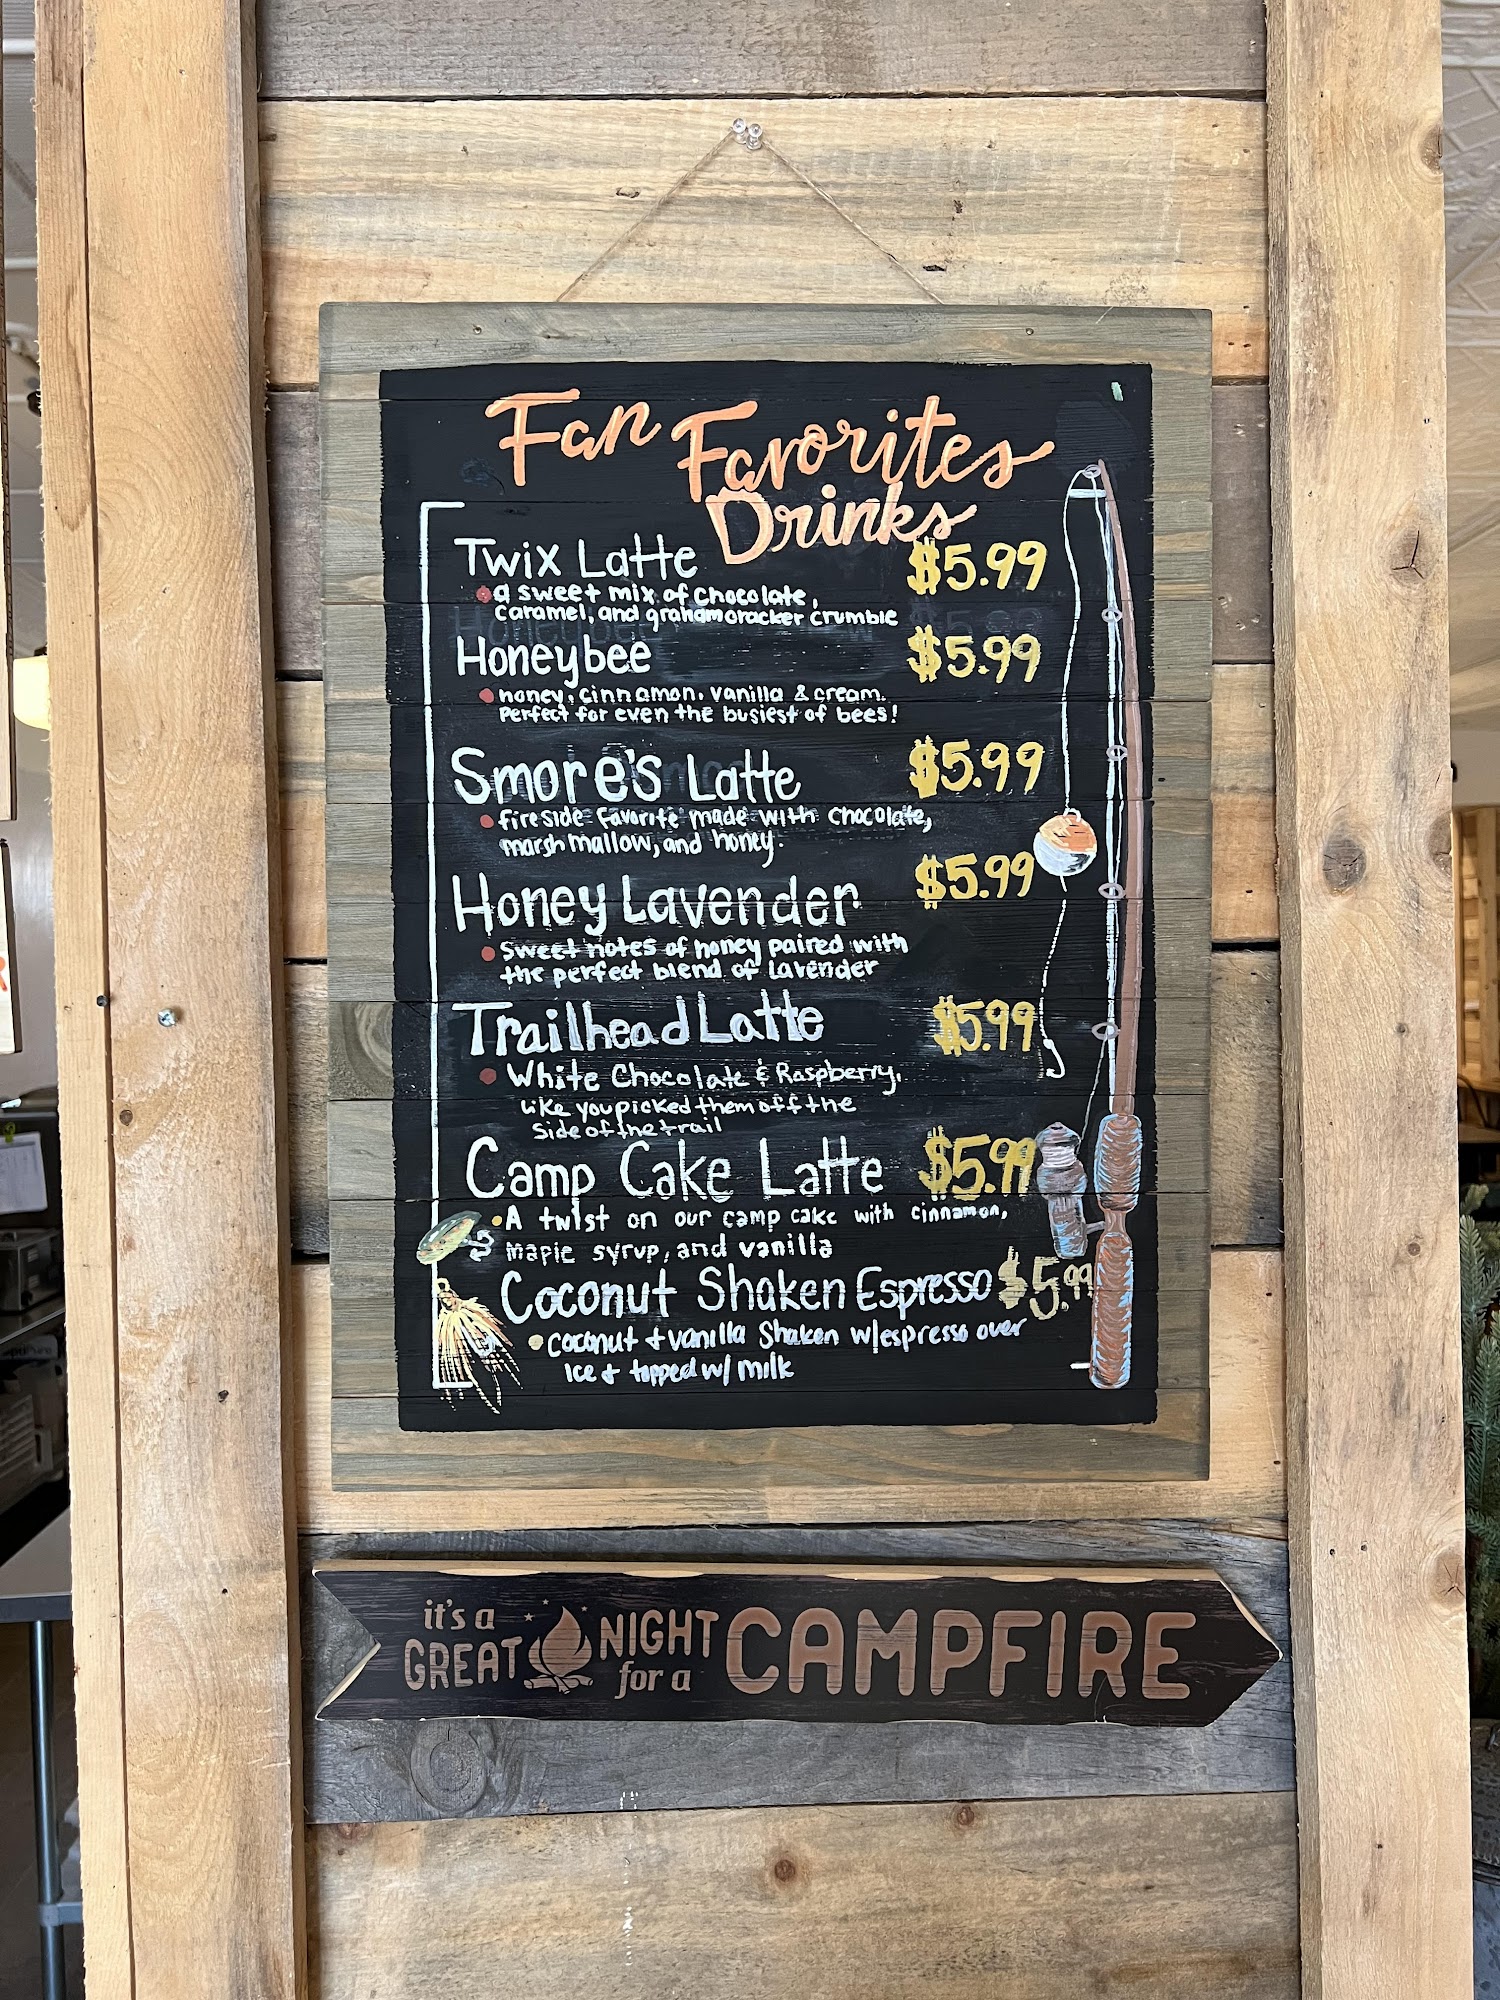 Fan Favorites
Drinks
Twix Latte $5.99
a sweet mix of chocolate,
caramel, and grahamcracker crumble
Honeybee $5.99
honey, cinnamon, vanilla & cream.
Perfect for even the busiest of bees!
Smore's Latte $5.99
fireside favorite made with chocolate,
marshmallow, and honey.
Honey Lavender $5.99
sweet notes of honey paired with
the perfect blend of lavender
Trailhead Latte $5.99
White Chocolate & Raspberry,
like you picked them off the
side of the trail
Camp Cake Latte $5.99
A twist on our camp cake with cinnamon,
maple syrup, and vanilla
Coconut Shaken Espresso $5.99
coconut + vanilla Shaken w/espresso over
Ice + topped w/ milk
it's a GREAT NIGHT for a CAMPFIRE